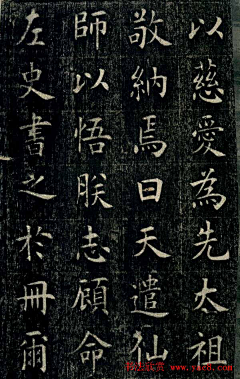 以慈愛為先太祖
敬納焉曰天遣仙
師以悟朕志顧命
左史書之於冊爾
书法欣赏
www.yac8.com